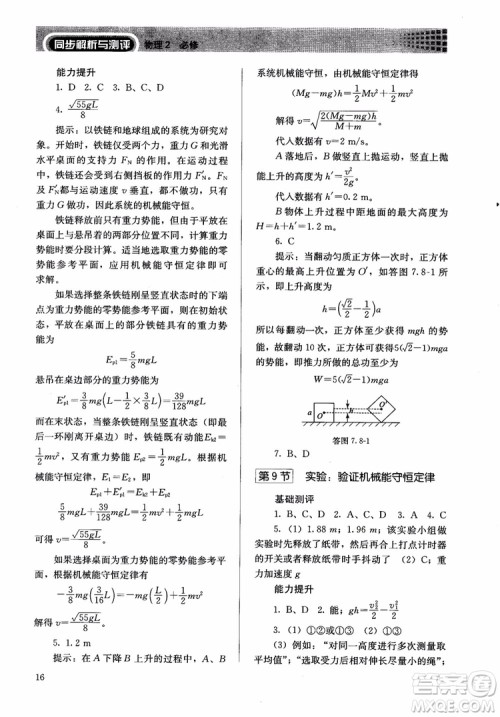 同步解析与测评 物理2 必修
能力提升
1. B、D 2. C、D 3. B、C、D
4. \frac{\sqrt{55gL}}{8}
提示：以铁链和地球组成的系统为研究对
象。开始时，铁链仅受两个力：重力 G 和光滑
水平桌面的支持力 F_N 的作用。在运动过程中，
铁链还会受到右侧挡板的支持力 F'_N，由于 F_N
和 F'_N 始终与运动速度 v 垂直，都不做功，只有
重力 G 做功，因此系统的机械能守恒。
铁链释放前只有重力势能，但由于平放在
桌面与悬吊着的两部分位置不同，计算重力势
能时要分段计算。适当地选择一个水平面为重
力势能参考平面，应用机械能守恒定律即可
求解。
如果选择整条铁链刚呈竖直状态时的下端
点为重力势能参考平面，则平放在桌面部分铁
链的重力势能为
E_{p1}=\frac{5}{8}mgL
悬吊在桌边部分的重力势能为
E'_{p1}=\frac{3}{8}mg(L-\frac{1}{2}×\frac{3}{8}L)=\frac{39}{128}mgL
在末状态，当整条铁链呈竖直状态时具有
的重力势能为 \frac{1}{2}mgL，动能为 \frac{1}{2}mv²。根据机
械能守恒定律有 E_1=E_2，即
E_{p1}+E'_{p1}=E_{p2}+E_{k2}
\frac{5}{8}mgL+\frac{39}{128}mgL=\frac{1}{2}mgL+\frac{1}{2}mv²
可得 v=\frac{\sqrt{55gL}}{8}。
如果选择桌面为重力势能的参考平面，根
据机械能守恒定律有
-\frac{3}{8}mg(\frac{3}{16}L)=-\frac{1}{2}mgL+\frac{1}{2}mv²
解得 v=\frac{\sqrt{55gL}}{8}。
5. 1.2 m
提示：在 A 下降 B 上升的过程中，A、B
16
系统机械能守恒，由机械能守恒定律得
(Mg-mg)h=\frac{1}{2}Mv²+\frac{1}{2}mv²
解得 v=\sqrt{\frac{2(Mg-mg)h}{M+m}}
代入数据有 v=2 m/s。
A 落地后，B 做竖直上抛运动，竖直上抛
能上升的高度 h'=\frac{v²}{2g}。
代入数据有 h'=0.2 m。
B 物体上升过程中距地面的最大高度为
H=h+h'=1.2 m。
6. C
提示：当翻动匀质正方体木箱时，正方体
重心的最高点应在 O'，如答图 7.8-1
h=(\frac{\sqrt{2}}{2}-\frac{1}{2})a
所以每翻动一次，必须给物体 mgh 的势
能，共翻动 10 次，故至少要对它做 10 mgh
的势能，即
W=5(\sqrt{2}-1)mga
a O O' h
答图 7.8-1
7. B、D
第 9 节 实验：验证机械能守恒定律
基础测评
1. C 2. A、B 3. A 4. C
5. (1) 1.88 m；1.96 m；重物在下落过程
中受到纸带、空气的阻力；实验时先接通计时器
的开关或者释放纸带时手抖动了 (2) C；重
力加速度 g
能力提升
1. B、D 2. D；gh=\frac{v_2²}{2}-\frac{v_1²}{2}
3. (1) ①② (2) ①②③
(3) 例如：“对于同一高度进行多次测量取
平均值”；“选取受力后相对伸长尽量小的绳”；